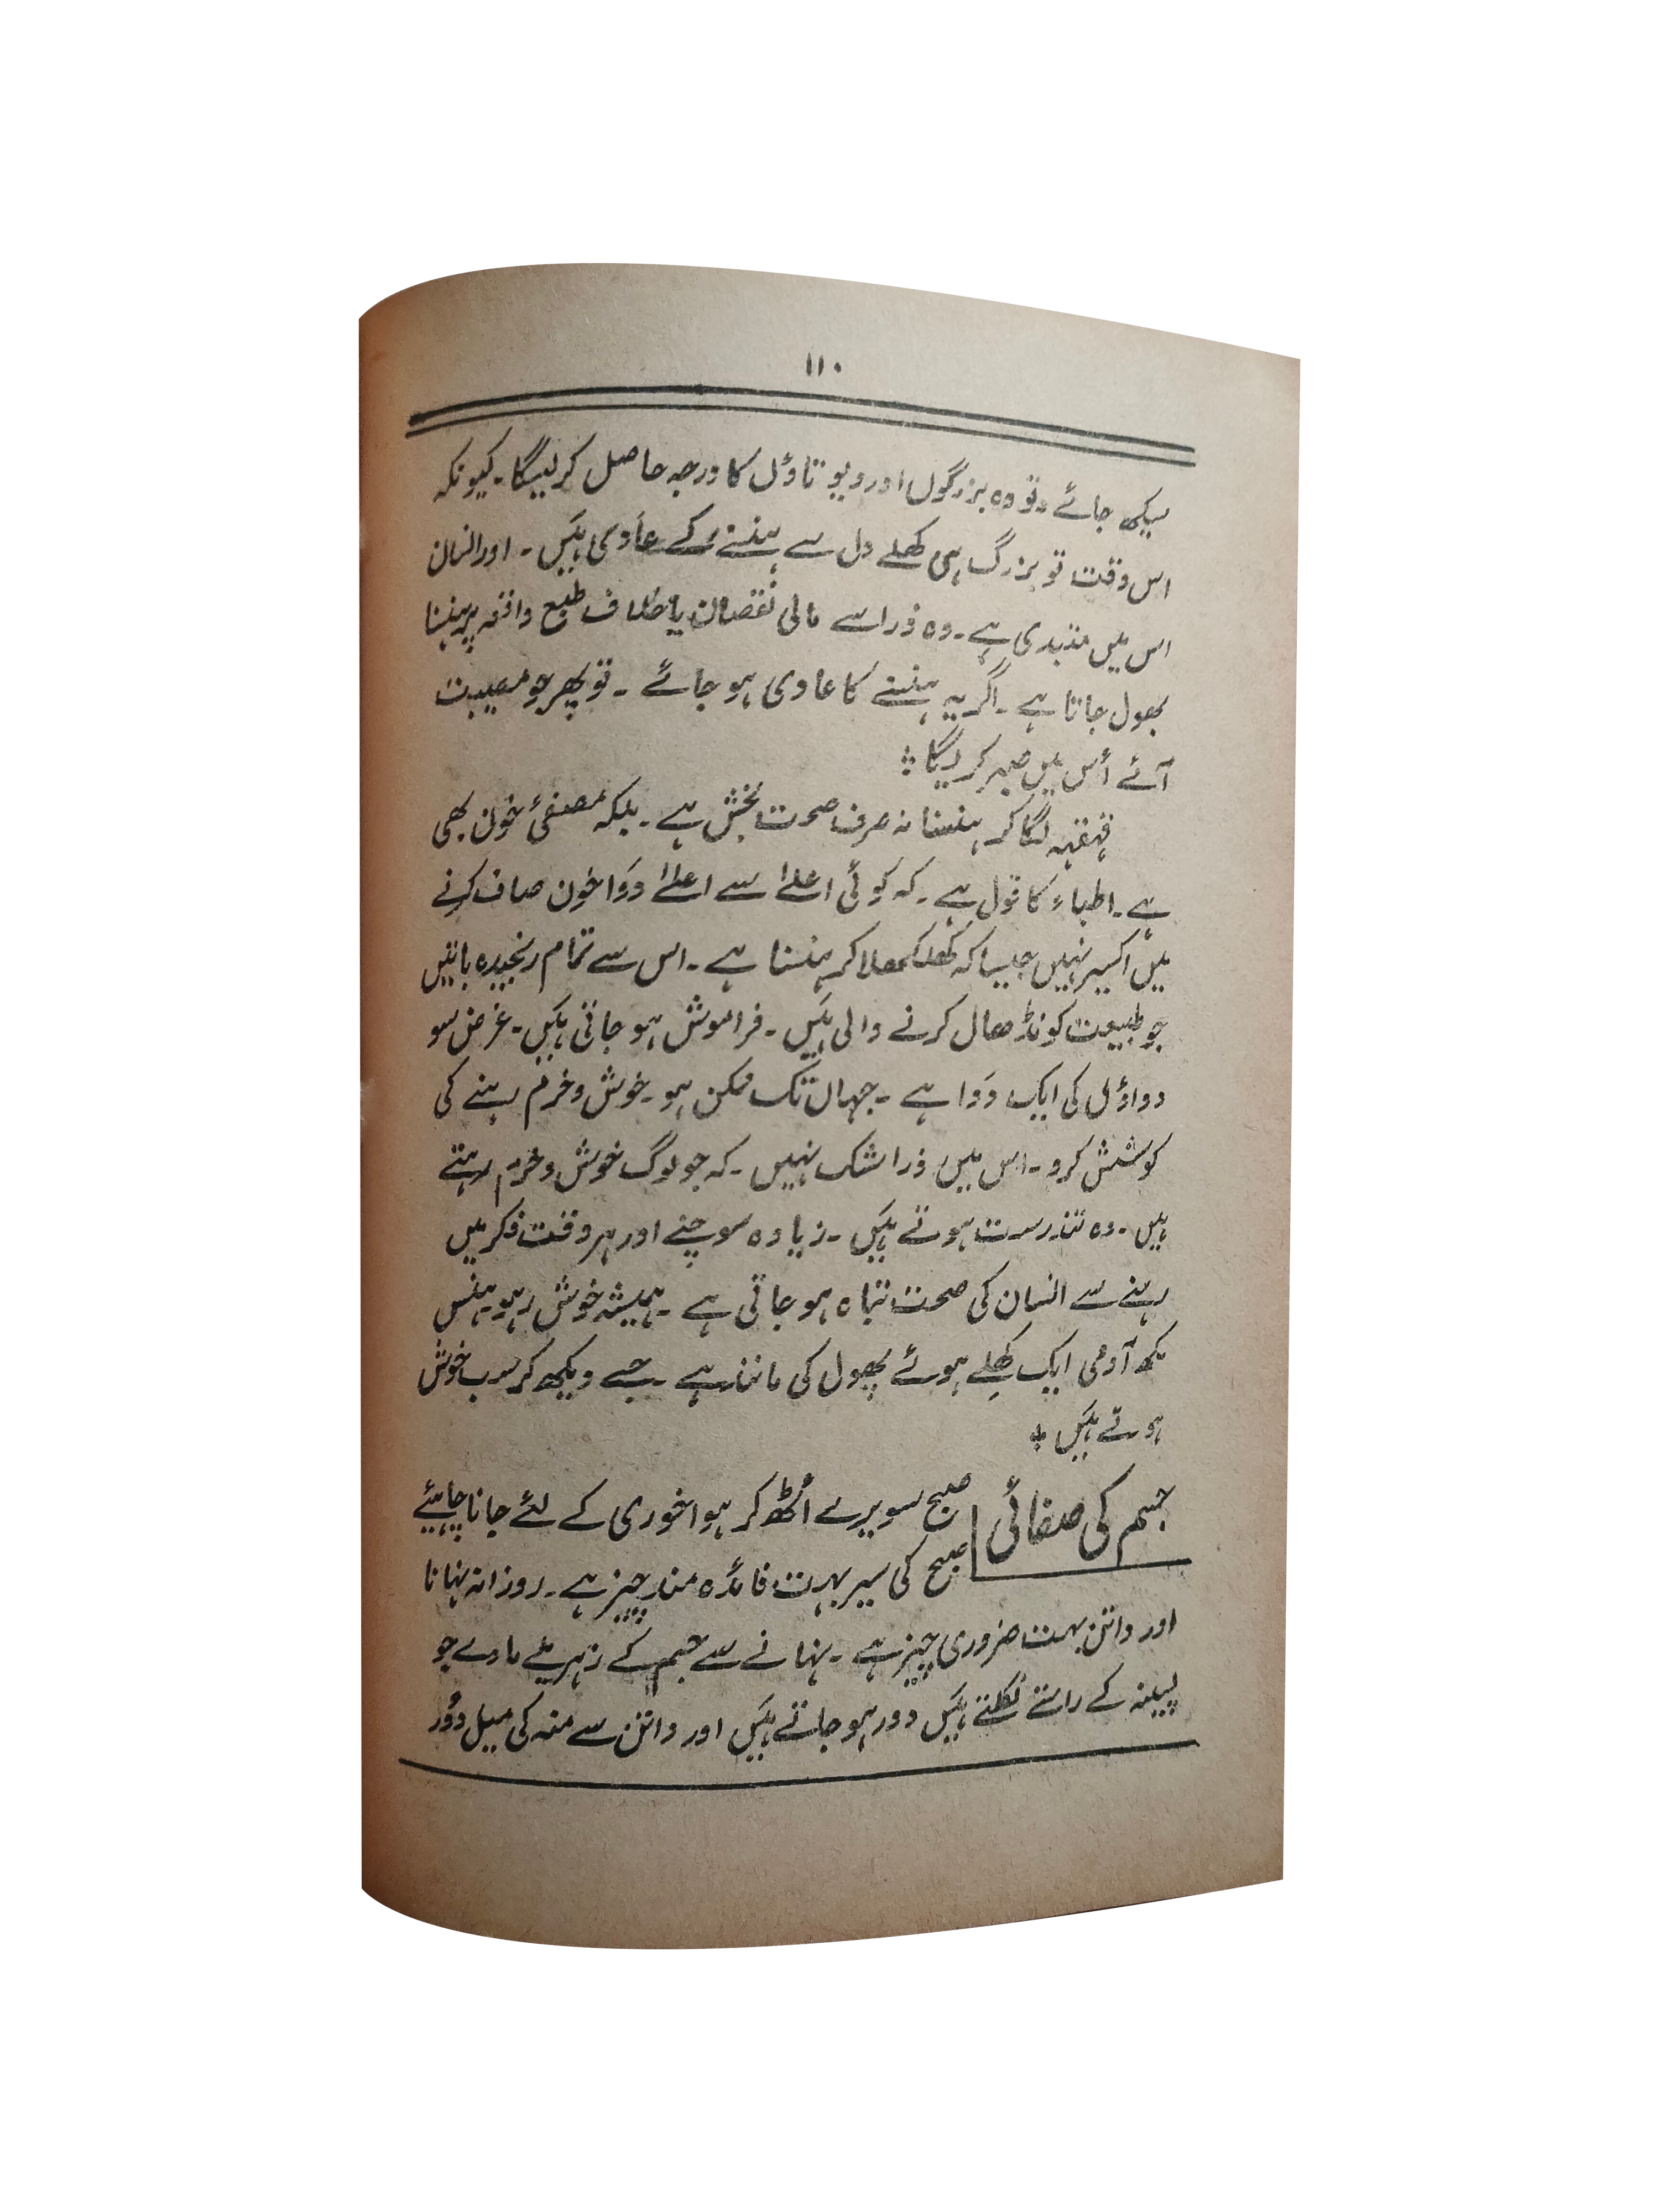 ۱۱۰
سیکھ جائے۔ تو وہ بزرگوں اور دیوتاؤں کا درجہ حاصل کر لیگا۔ کیونکہ
اس وقت تو بزرگ ہی کھلے دل سے ہنسنے کے عادی ہیں۔ اور انسان
اس میں مبتدی ہے۔ وہ ذرا سے مالی نقصان یا خلاف طبع واقعہ پر ہنسنا
بھول جاتا ہے۔ اگر یہ ہنسنے کا عادی ہو جائے۔ تو پھر جو مصیبت
آئے اُس میں صبر کریگا :
قہقہہ لگا کر ہنسنا نہ صرف صحت بخش ہے۔ بلکہ مصفیٔ خون بھی
ہے۔ اطباء کا قول ہے۔ کہ کوئی اعلےٰ سے اعلےٰ دَوا خون صاف کرنے
میں اکسیر نہیں جیسا کہ کھلکھلا کر ہنسنا ہے۔ اس سے تمام رنجیدہ باتیں
جو طبیعت کو نڈھال کرنے والی ہیں۔ فراموش ہو جاتی ہیں۔ غرض سو
دواؤں کی ایک دَوا ہے۔ جہاں تک ممکن ہو۔ خوش و خرم رہنے کی
کوشش کرو۔ اس میں ذرا شک نہیں۔ کہ جو لوگ خوش و خرم رہتے
ہیں۔ وہ تندرست ہوتے ہیں۔ زیادہ سوچنے اور ہر وقت فکر میں
رہنے سے انسان کی صحت تباہ ہو جاتی ہے۔ ہمیشہ خوش رہو۔ ہنس
مکھ آدمی ایک کھِلے ہوئے پھول کی مانند ہے۔ جسے دیکھ کر سب خوش
ہوتے ہیں ؞
جسم کی صفائی صبح سویرے اُٹھ کر ہوا خوری کے لئے جانا چاہیئے
صبح کی سیر بہت فائدہ مند چیز ہے۔ روزانہ نہانا
اور داتن بہت ضروری چیز ہے۔ نہانے سے جسم کے زہریلے مادے جو
پسینہ کے راستے نکلتے ہیں دور ہو جاتے ہیں اور داتن سے منہ کی میل دُور